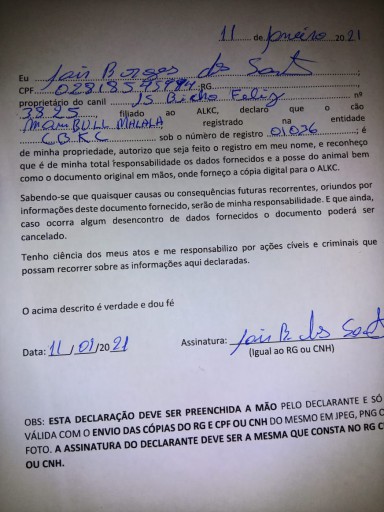 11 de Janeiro 2021
Eu Jais Borges dos Santos,
CPF 02818595994 RG
proprietário do canil JS Bicho Feliz nº
3825, filiado ao ALKC, declaro que o cão
MAMBULL MALALA registrado na entidade
CBKC sob o número de registro 01026; é
de minha propriedade, autorizo que seja feito o registro em meu nome, e reconheço
que é de minha total responsabilidade os dados fornecidos e a posse do animal bem
como o documento original em mãos, onde forneço a cópia digital para o ALKC.
Sabendo-se que quaisquer causas ou consequências futuras recorrentes, oriundos por
informações deste documento fornecido, serão de minha responsabilidade. E que ainda,
caso ocorra algum desencontro de dados fornecidos o documento poderá ser
cancelado.
Tenho ciência dos meus atos e me responsabilizo por ações cíveis e criminais que
possam recorrer sobre as informações aqui declaradas.
O acima descrito é verdade e dou fé
Data: 11/01/2021 Assinatura: Jais B dos Sant
(Igual ao RG ou CNH)
OBS: ESTA DECLARAÇÃO DEVE SER PREENCHIDA A MÃO PELO DECLARANTE E SÓ
VÁLIDA COM O ENVIO DAS CÓPIAS DO RG E CPF OU CNH DO MESMO EM JPEG, PNG O
FOTO. A ASSINATURA DO DECLARANTE DEVE SER A MESMA QUE CONSTA NO RG C
OU CNH.